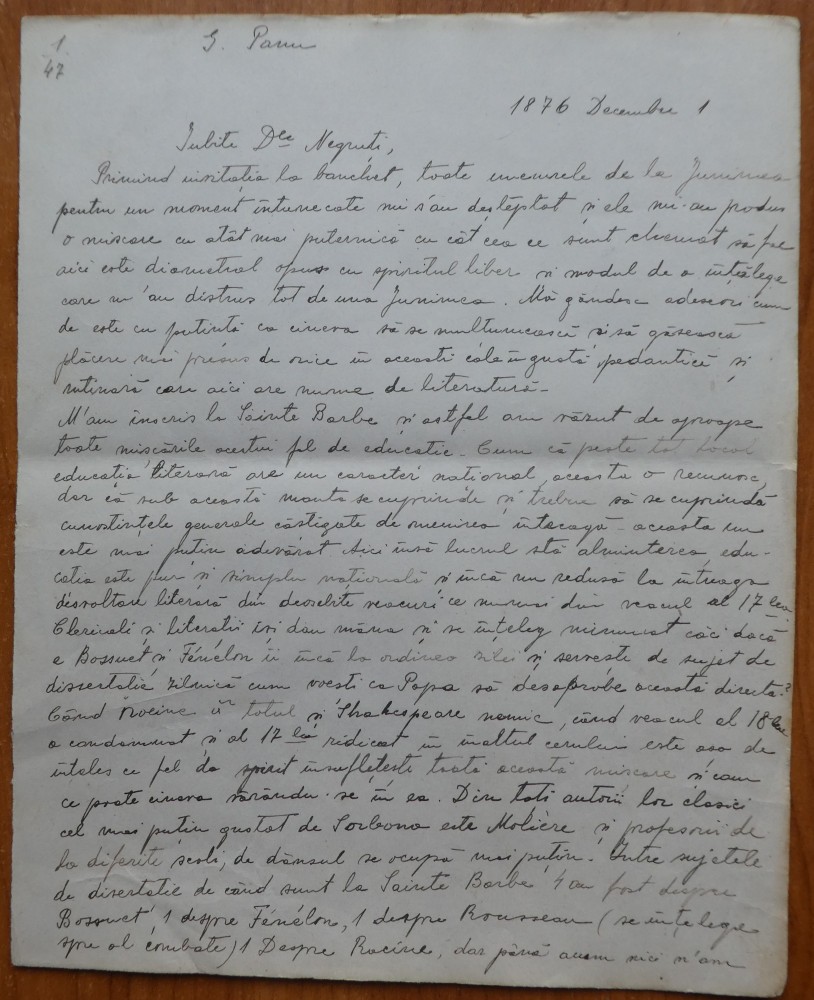 1
47
G. Panu
1876 Decembre 1
Iubite Dle Negruți,
Primind invitația la banchet, toate suvenirele de la Junimea
pentru un moment întunecate mi s'au deșteptat și ele mi-au produs
o mișcare cu atât mai puternică cu cât ceea ce sunt chemat să fac
aici este diametral opus cu spiritul liber și modul de a înțălege
care m'au distrus tot de una Junimea. Mă gândesc adeseori cum
de este cu putință ca cineva să se mulțumească și să găsească
plăcere mai presus de orice în această cale îngustă, pedantică și
rutinară care aici are nume de literatură.
M'am înscris la Sainte Barbe și astfel am văzut de aproape
toate mișcările acestui fel de educație. Cum că peste tot locul
educația literară are un caracter național, aceasta o recunosc,
dar că sub această manta se cuprinde și trebue să se cuprindă
cunoștințele generale câștigate de omenirea întreagă - aceasta nu
este mai puțin adevărat. Aici însă lucrul stă almintrea, edu-
cația este pur și simplu națională și încă nu redusă la întreaga
desvoltare literară din deosebite veacuri ce numai din veacul al 17 lea.
Clericali și literații își dau mâna și se înțeleg minunat căci dacă
a Bossuet și Fénélon îi încă la ordinea zilei și servește de sujet de
dissertație zilnică cum voești ca Papa să desaprobe această direcția?
Când Racine îi totul și Shakespeare nemic, când veacul al 18 lea
a condamnat și al 17 lea ridicat în înaltul cerului este ușor de
înțeles ce fel de spirit însuflețește toată această mișcare și cam
ce poate cineva vârându-se în ea. Din toți autorii lor clasici
cel mai puțin gustat de Sorbona este Molière și profesorii de
la diferite școli, de dânsul se ocupă mai puțin. Între sujetele
de disertație de când sunt la Sainte Barbe 4 au fost despre
Bossuet, 1 despre Fénélon, 1 despre Rousseau (se înțelege
spre al combate) 1 Despre Racine, dar până acum nici n'am